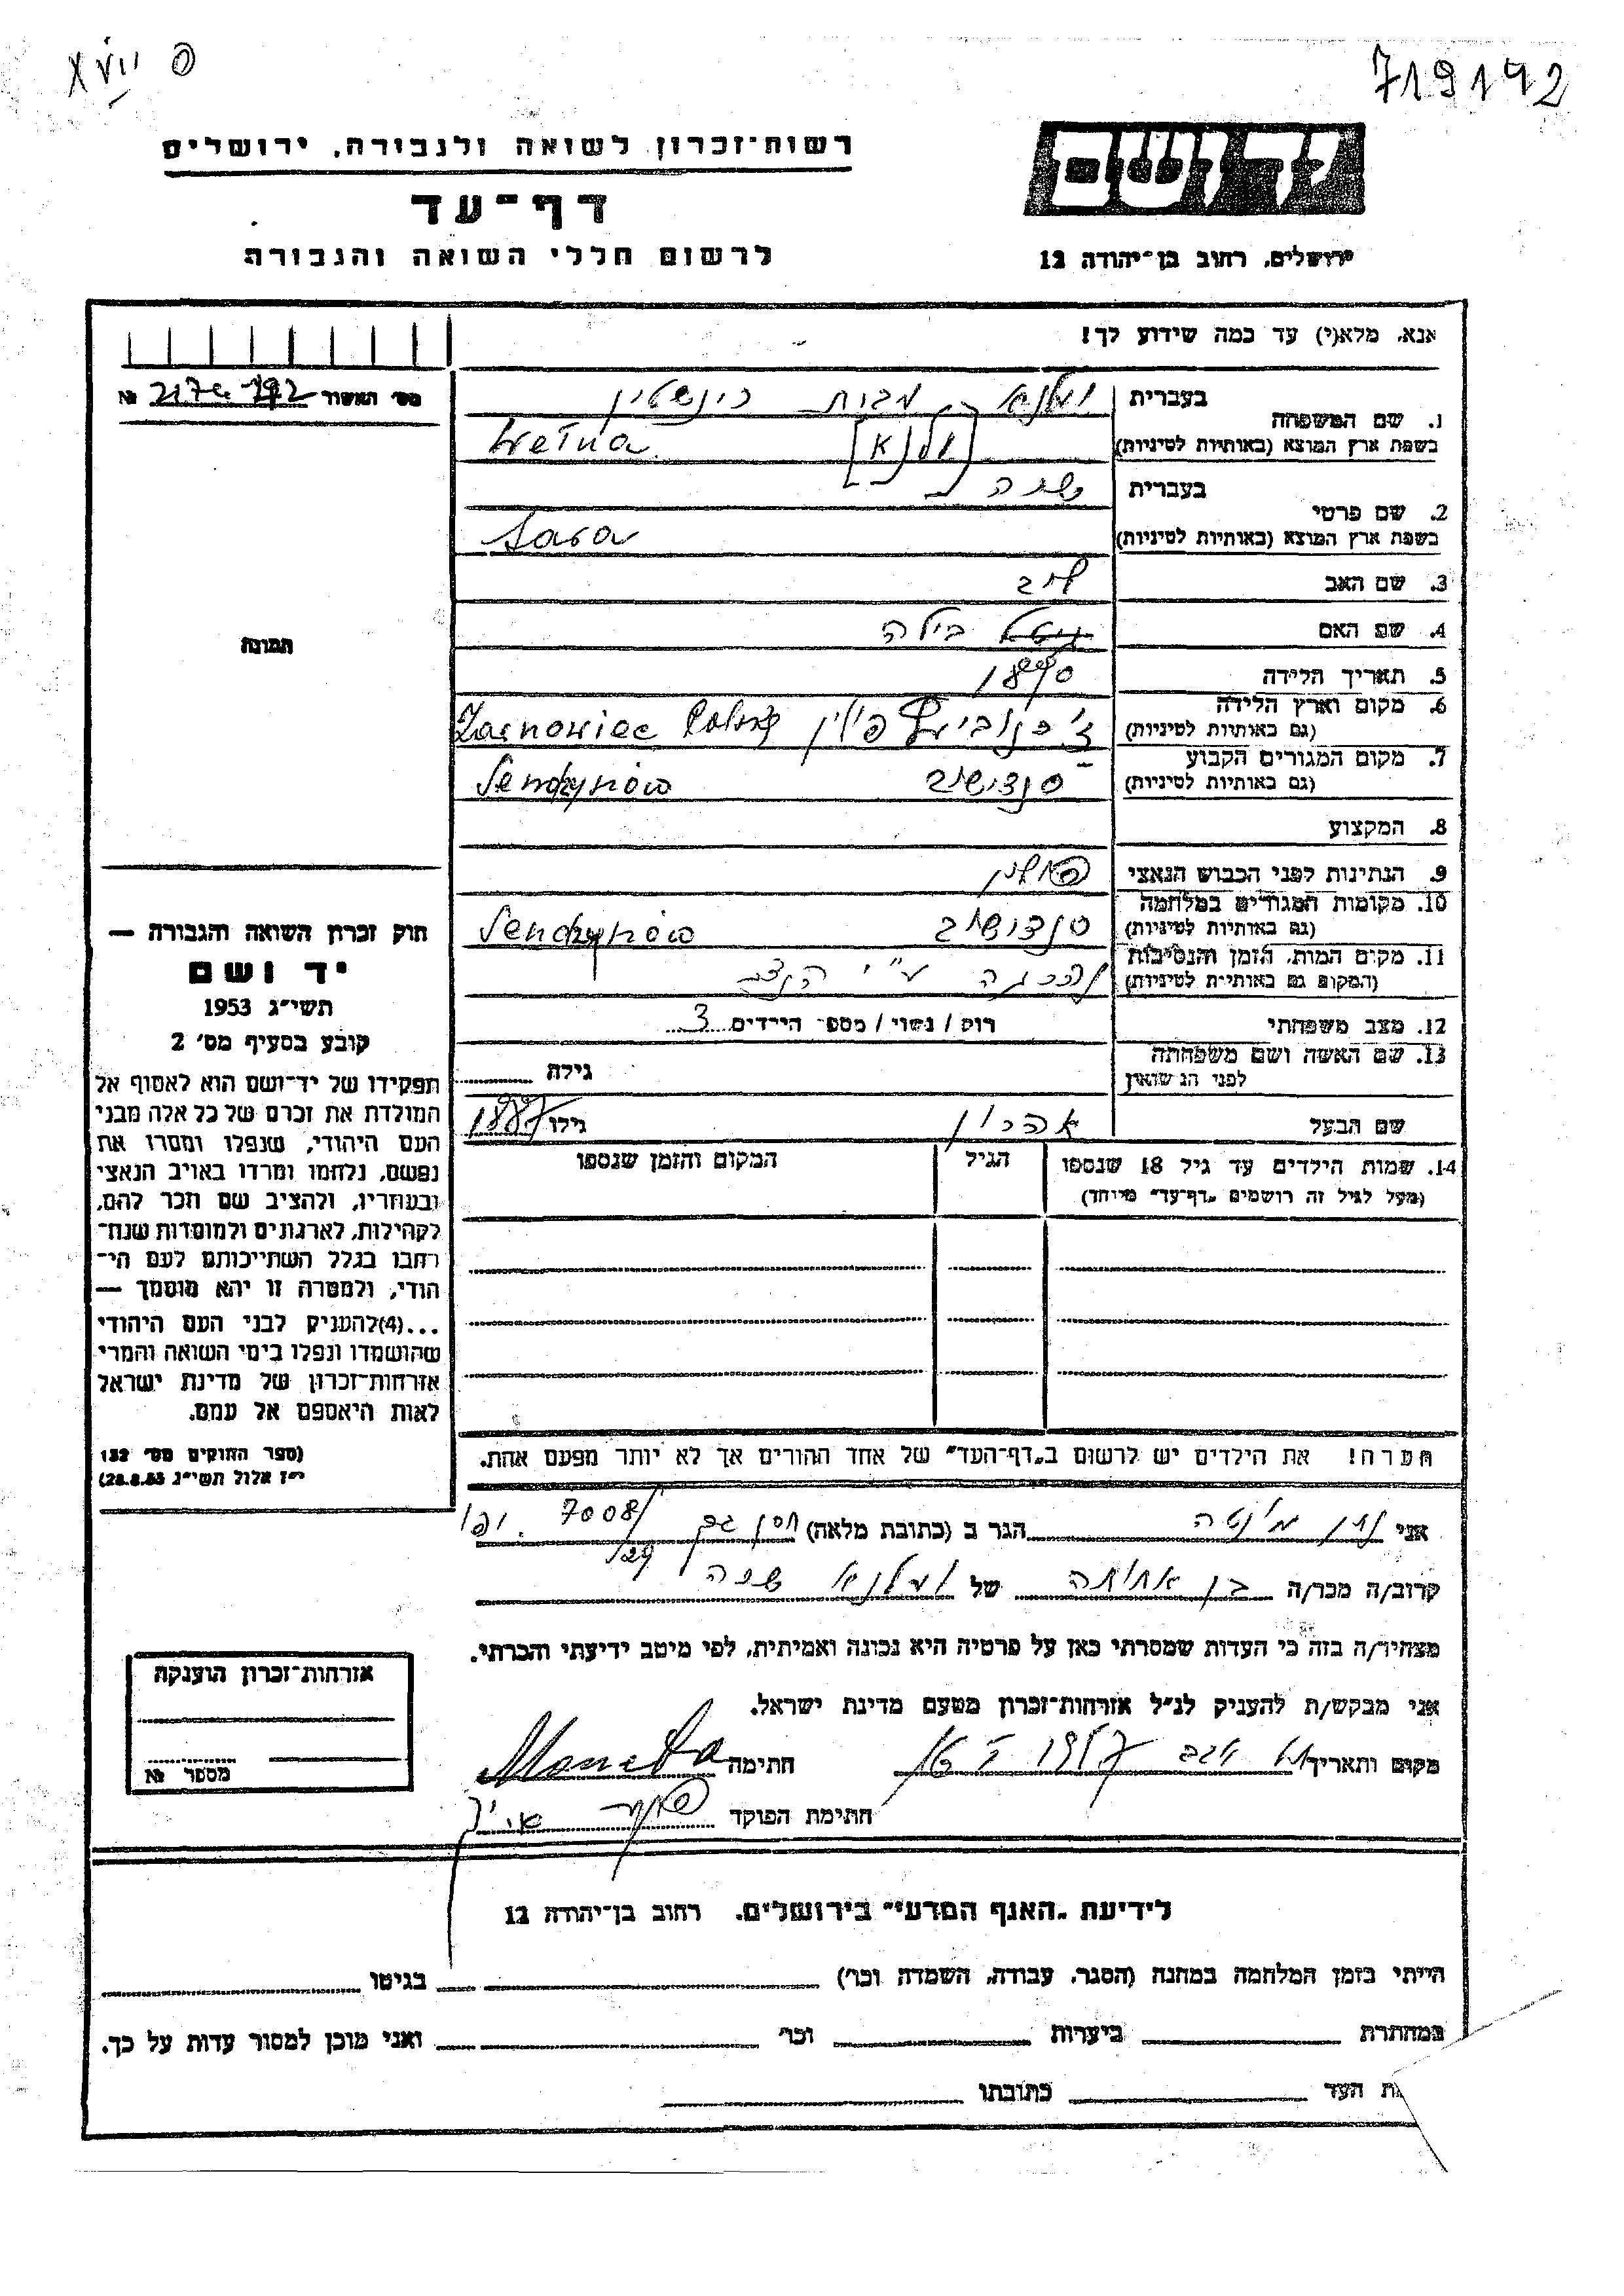 XVII פ
719142
רשות־זכרון לשואה ולגבורה, ירושלים
דף־עד
לרשום חללי השואה והגבורה
יד ושם
ירושלים, רחוב בן־יהודה 12
אנא, מלא(י) עד כמה שידוע לך!
מס׳ האשור №
1. שם המשפחה
בעברית וולנא מבית רינשטין
בשפת ארץ המוצא (באותיות לטיניות) Wełna [ולנא]
2. שם פרטי
בעברית שרה
בשפת ארץ המוצא (באותיות לטיניות) Sara
3. שם האב
4. שם האם בילה
5. תאריך הלידה 1890
6. מקום וארץ הלידה (גם באותיות לטיניות) ז׳רנוביץ פולין Zarnowiec
7. מקום המגורים הקבוע (גם באותיות לטיניות) סנדישוב Sendzyniów
8. המקצוע
9. הנתינות לפני הכבוש הנאצי פולין
10. מקומות המגורים במלחמה (גם באותיות לטיניות) סנדישוב Sendzyniów
11. מקום המות, הזמן והנסיבות (המקום גם באותיות לטיניות) נהרגה ע״י
12. מצב משפחתי רווק / נשוי / מספר הילדים 3
13. שם האשה ושם משפחתה לפני הנשואין
גילה
שם הבעל אהרון גילו 1887
14. שמות הילדים עד גיל 18 שנספו
(מעל לגיל זה רושמים „דף־עד״ מיוחד)
הגיל
המקום והזמן שנספו
הערה! את הילדים יש לרשום ב„דף־העד״ של אחד ההורים אך לא יותר מפעם אחת.
תמונה
חוק זכרון השואה והגבורה —
יד ושם
תשי״ג 1953
קובע בסעיף מס׳ 2
תפקידו של יד־ושם הוא לאסוף אל
המולדת את זכרם של כל אלה מבני
העם היהודי, שנפלו ומסרו את
נפשם, נלחמו ומרדו באויב הנאצי
ובעוזריו, ולהציב שם וזכר להם,
לקהילות, לארגונים ולמוסדות שנח־
רבו בגלל השתייכותם לעם הי־
הודי, ולמטרה זו יהא מוסמך —
...(4)להעניק לבני העם היהודי
שהושמדו ונפלו בימי השואה והמרי
אזרחות־זכרון של מדינת ישראל
לאות היאספם אל עמם.
(ספר החוקים מס׳ 132
י״ז אלול תשי״ג 28.8.53)
אני נתן מונטה הגר ב (כתובת מלאה) 7008/ יפו
קרוב/ה מכר/ה בן אחותה של וולנא שרה
מצהיר/ה בזה כי העדות שמסרתי כאן על פרטיה היא נכונה ואמיתית, לפי מיטב ידיעתי והכרתי.
אני מבקש/ת להעניק לנ״ל אזרחות־זכרון מטעם מדינת ישראל.
מקום ותאריך חתימה Moneta
חתימת הפוקד
אזרחות־זכרון הוענקה
מספר №
לידיעת „האגף המדעי״ בירושלים, רחוב בן־יהודה 12
הייתי בזמן המלחמה במחנה (הסגר, עבודה, השמדה וכו׳) בגיטו
במחתרת ביערות וכו׳ ואני מוכן למסור עדות על כך.
ת העד כתובתו